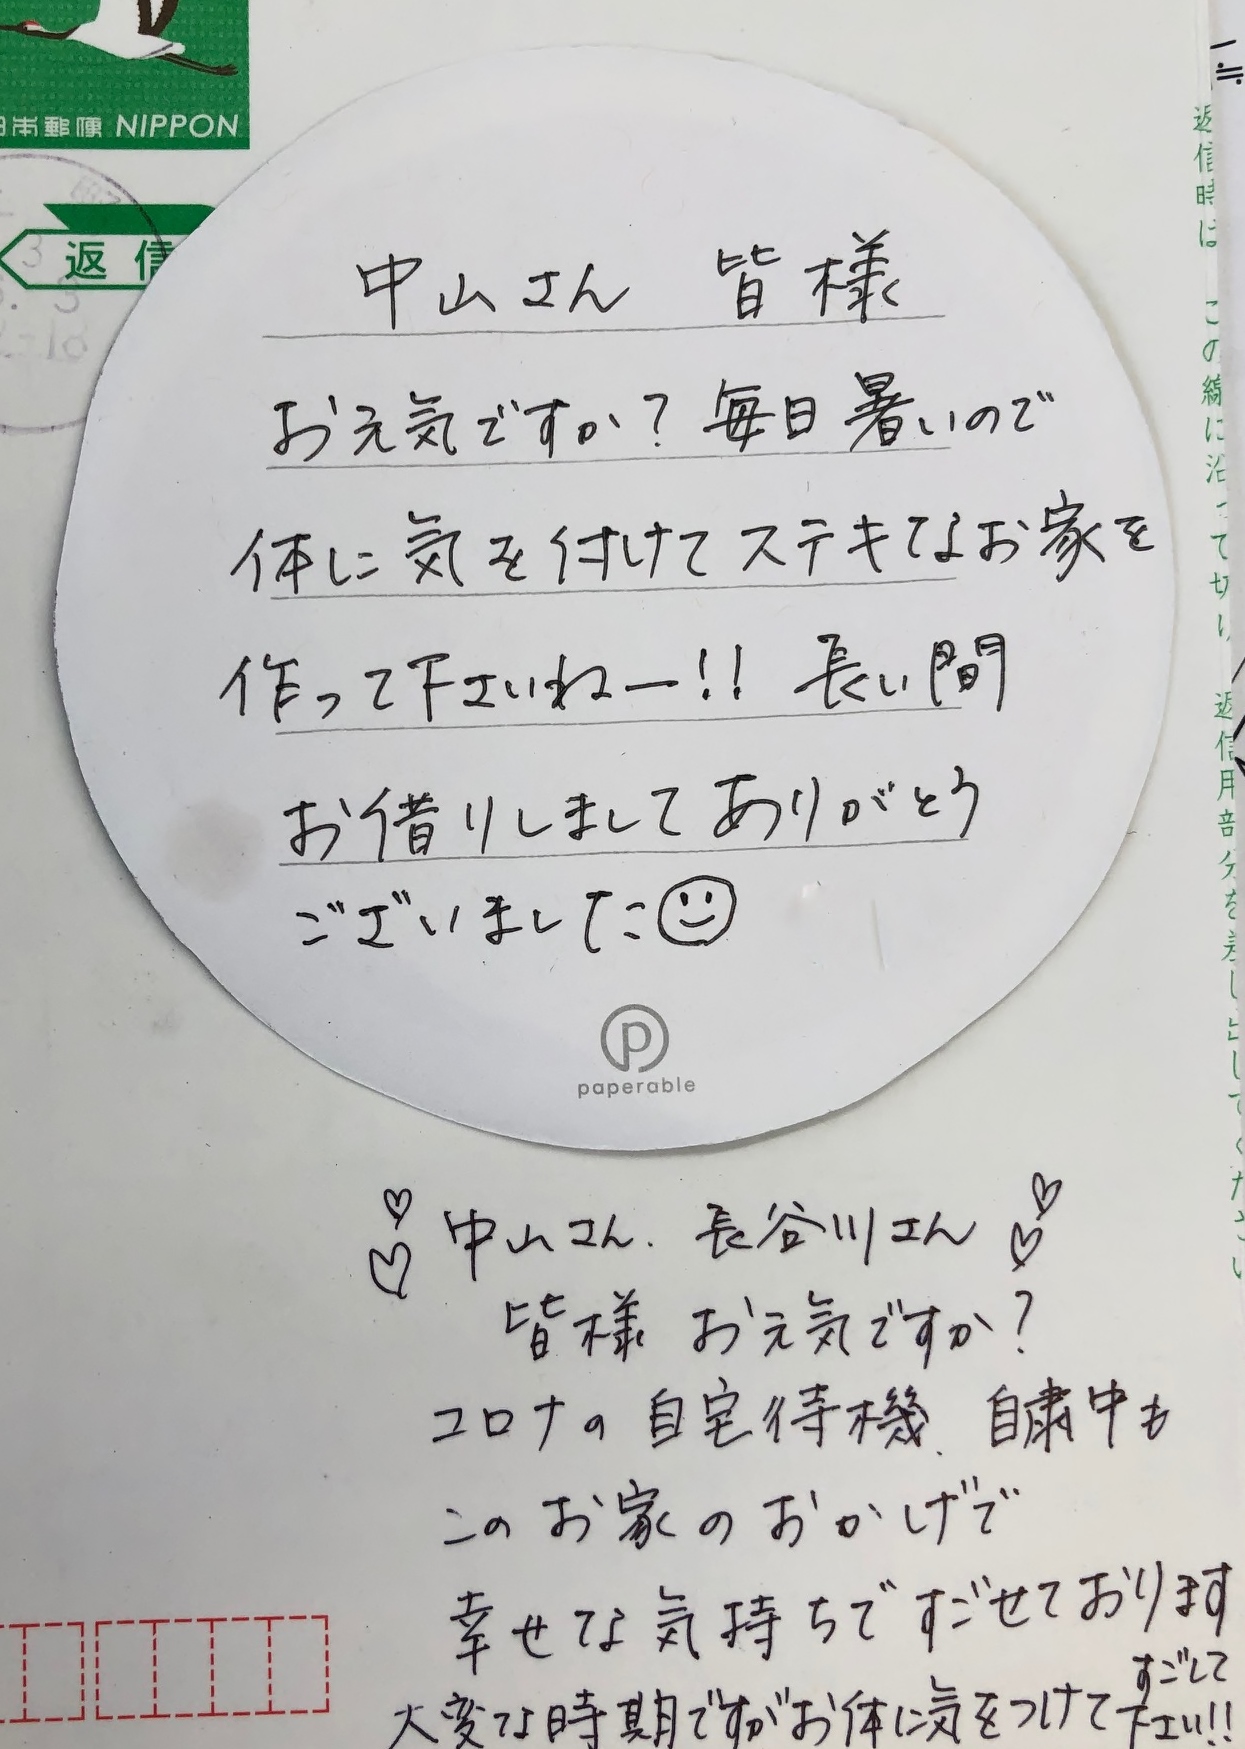 日本郵便 NIPPON
返信
中山さん 皆様
お元気ですか？毎日暑いので
体に気を付けてステキなお家を
作って下さいねー!! 長い間
お借りしましてありがとう
ございました☺
paperable
中山さん、長谷川さん
皆様 お元気ですか？
コロナの自宅待機、自粛中も
このお家のおかげで
幸せな気持ちですごせております
大変な時期ですがお体に気をつけてすごして
下さい!!
返信時は この線に沿って切り 返信用部分を差し出してください